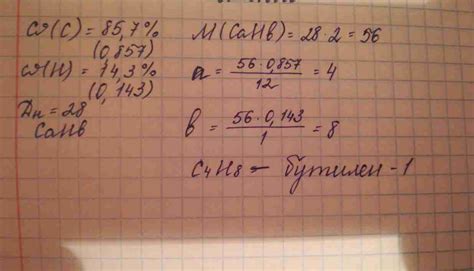 ω(C) = 85,7%
(0,857)
ω(H) = 14,3%
(0,143)
Dн = 28
CаHв
M(CаHв) = 28·2 = 56
а = 56·0,857 / 12 = 4
в = 56·0,143 / 1 = 8
C4H8 – бутилен-1